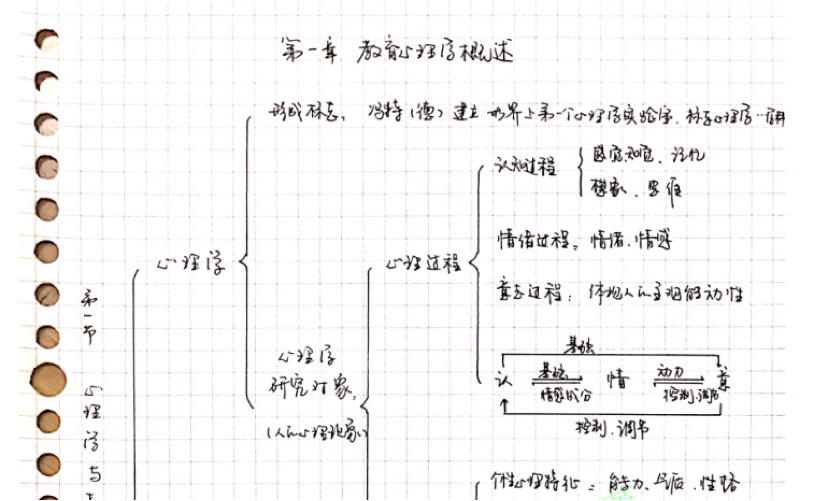 第一章 教育心理学概述
形成标志：冯特（德）建立世界上第一个心理学实验室，标志心理学
认知过程
感觉知觉、记忆
想象、思维
心理学
心理过程
情绪过程：情绪、情感
意志过程：体现人的主观能动性
第一节 心理学与
心理学
研究对象：
（人的心理现象）
基础
认 基础 情 动力 意
情感成分 控制、调节
控制、调节
个性心理特征：能力、气质、性格